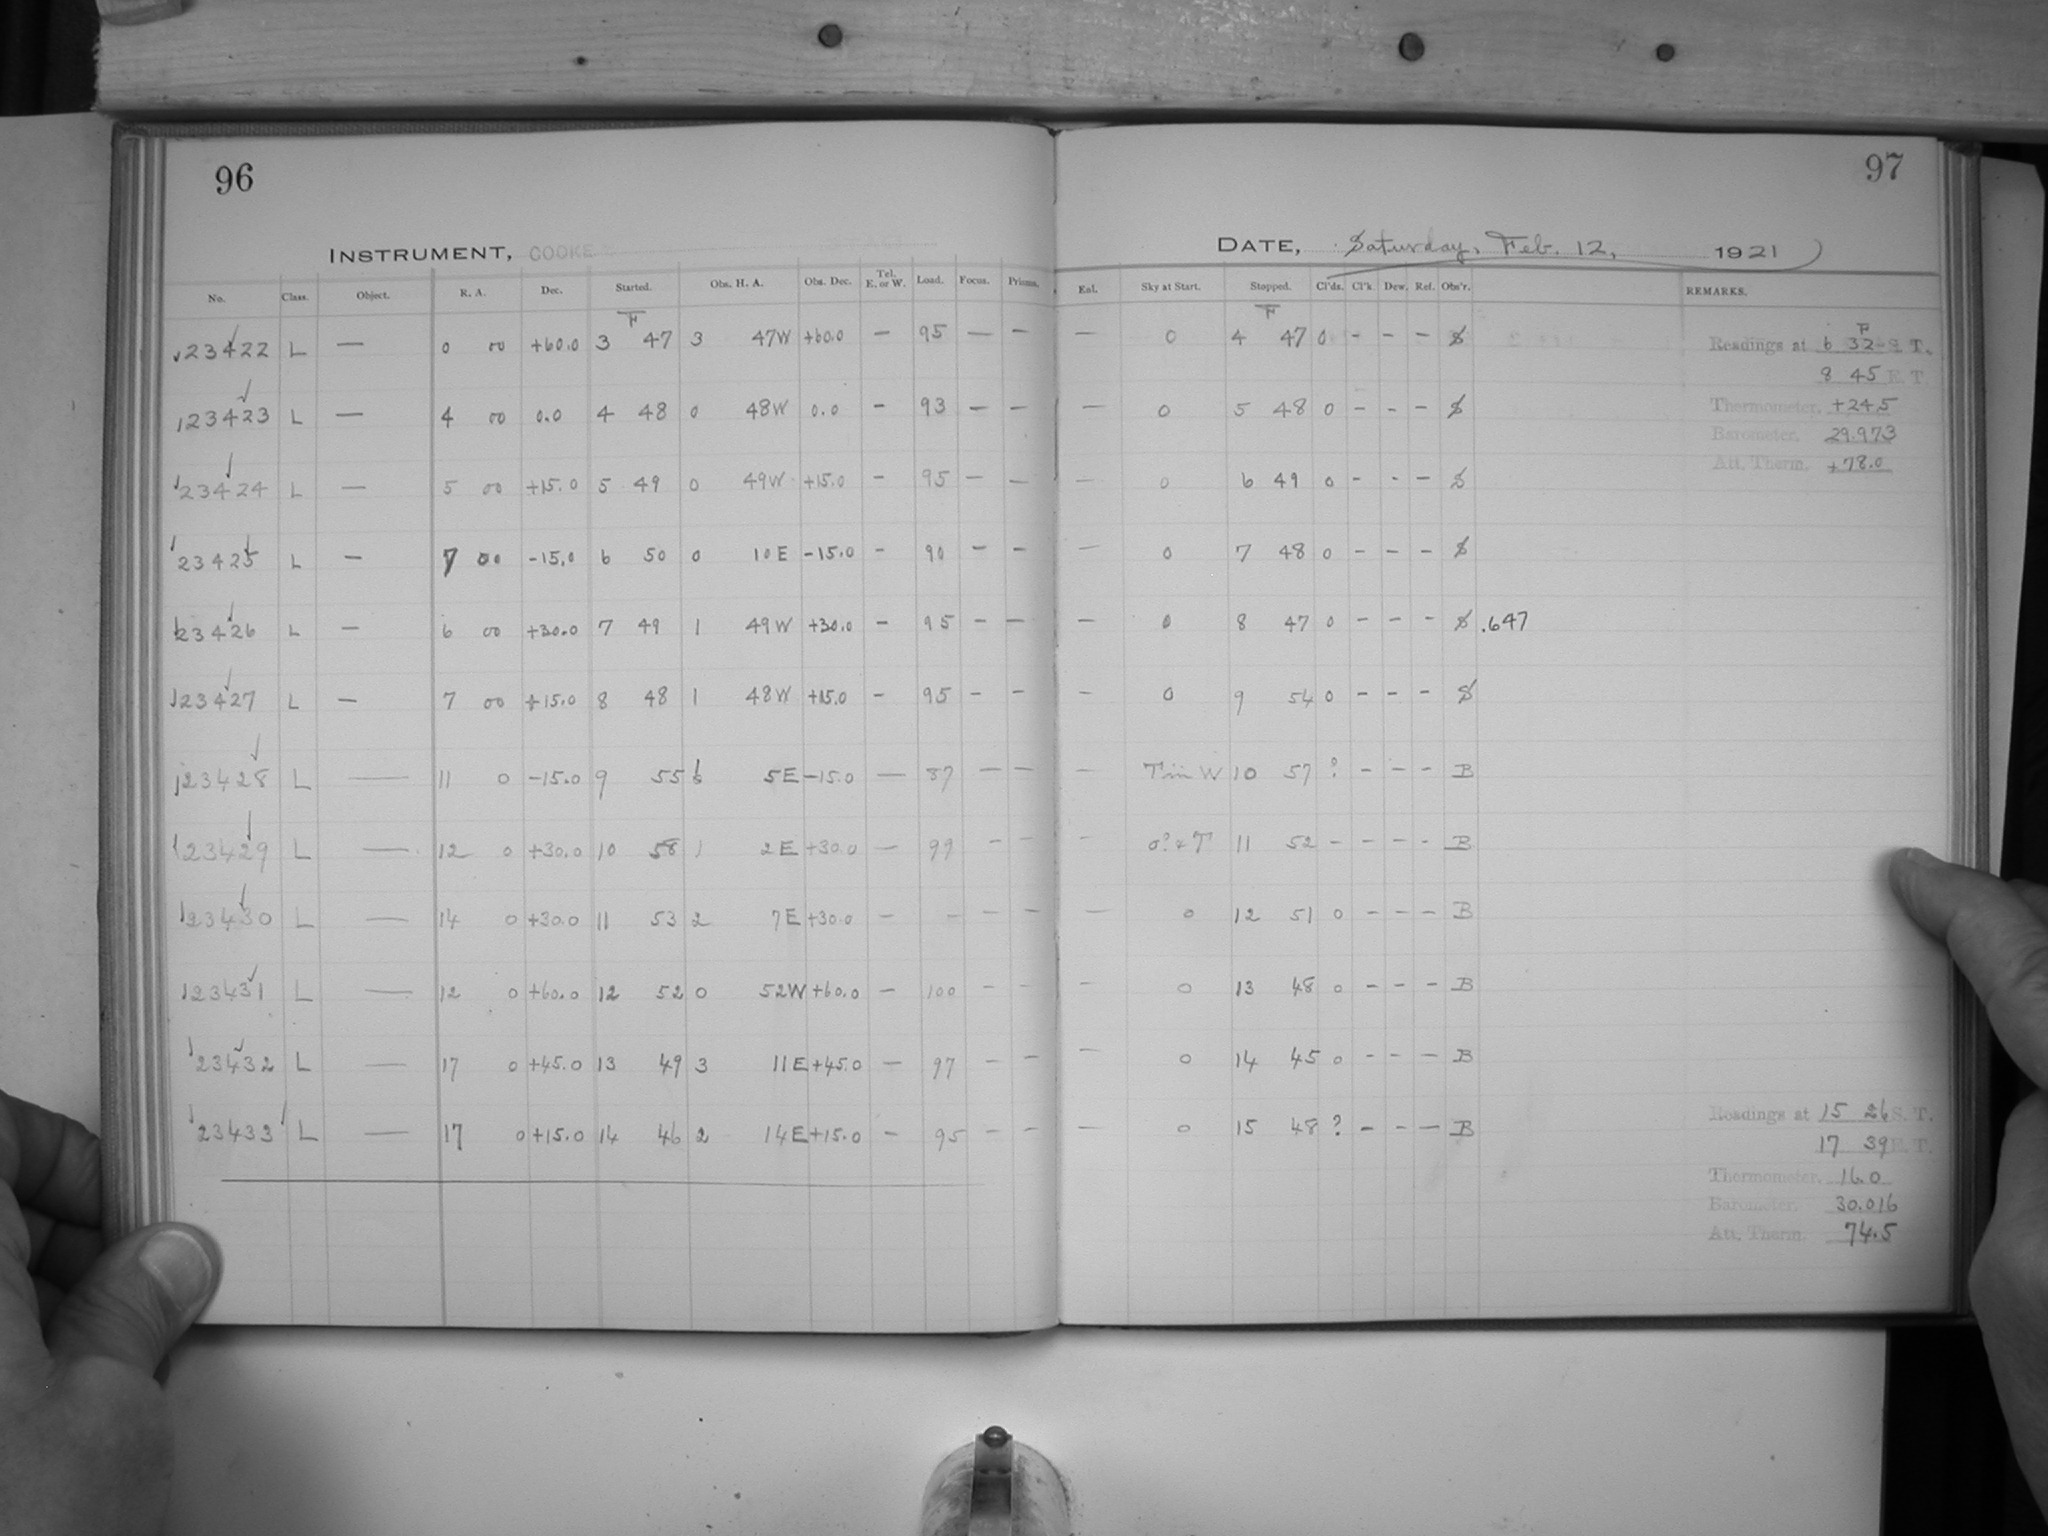 96
97
INSTRUMENT, COOKE
DATE, Saturday, Feb. 12, 1921
No. Class. Object. R. A. Dec. Started. Obs. H. A. Obs. Dec. Tel. E. or W. Load. Focus. Prisms. Enl. Sky at Start. Stopped. Cl'ds. Cl'k. Dew. Ref. Obs'r. REMARKS.
F F
23422 L — 0 00 +60.0 3 47 3 47W +60.0 — 95 — — — 0 4 47 0 - - - S
23423 L — 4 00 0.0 4 48 0 48W 0.0 - 93 — — — 0 5 48 0 - - - S
23424 L — 5 00 +15.0 5 49 0 49W +15.0 - 95 — — — 0 6 49 0 - - - S
23425 L — 7 00 -15.0 6 50 0 10E -15.0 - 90 - - — 0 7 48 0 - - - S
23426 L — 6 00 +30.0 7 49 1 49W +30.0 - 95 - — — 0 8 47 0 - - - S .647
23427 L — 7 00 +15.0 8 48 1 48W +15.0 - 95 - - - 0 9 54 0 - - - S
23428 L — 11 0 -15.0 9 55 5E -15.0 — 87 — — - T in W 10 57 ? - - - B
23429 L — 12 0 +30.0 10 58 1 2E +30.0 — 99 - - - 0? & T 11 52 - - - - B
23430 L — 14 0 +30.0 11 53 2 7E +30.0 - - - - — 0 12 51 0 - - - B
23431 L — 12 0 +60.0 12 52 0 52W +60.0 - 100 - - - 0 13 48 0 - - - B
23432 L — 17 0 +45.0 13 49 3 11E +45.0 — 97 - - — 0 14 45 0 - - - B
23433 L — 17 0 +15.0 14 46 2 14E +15.0 - 95 - - — 0 15 48 ? - - — B
F
Readings at 6 32 S. T.
8 45 E. T.
Thermometer, +24.5
Barometer, 29.973
Att. Therm. +78.0
Readings at 15 26 S. T.
17 39 E. T.
Thermometer, 16.0
Barometer, 30.016
Att. Therm. 74.5